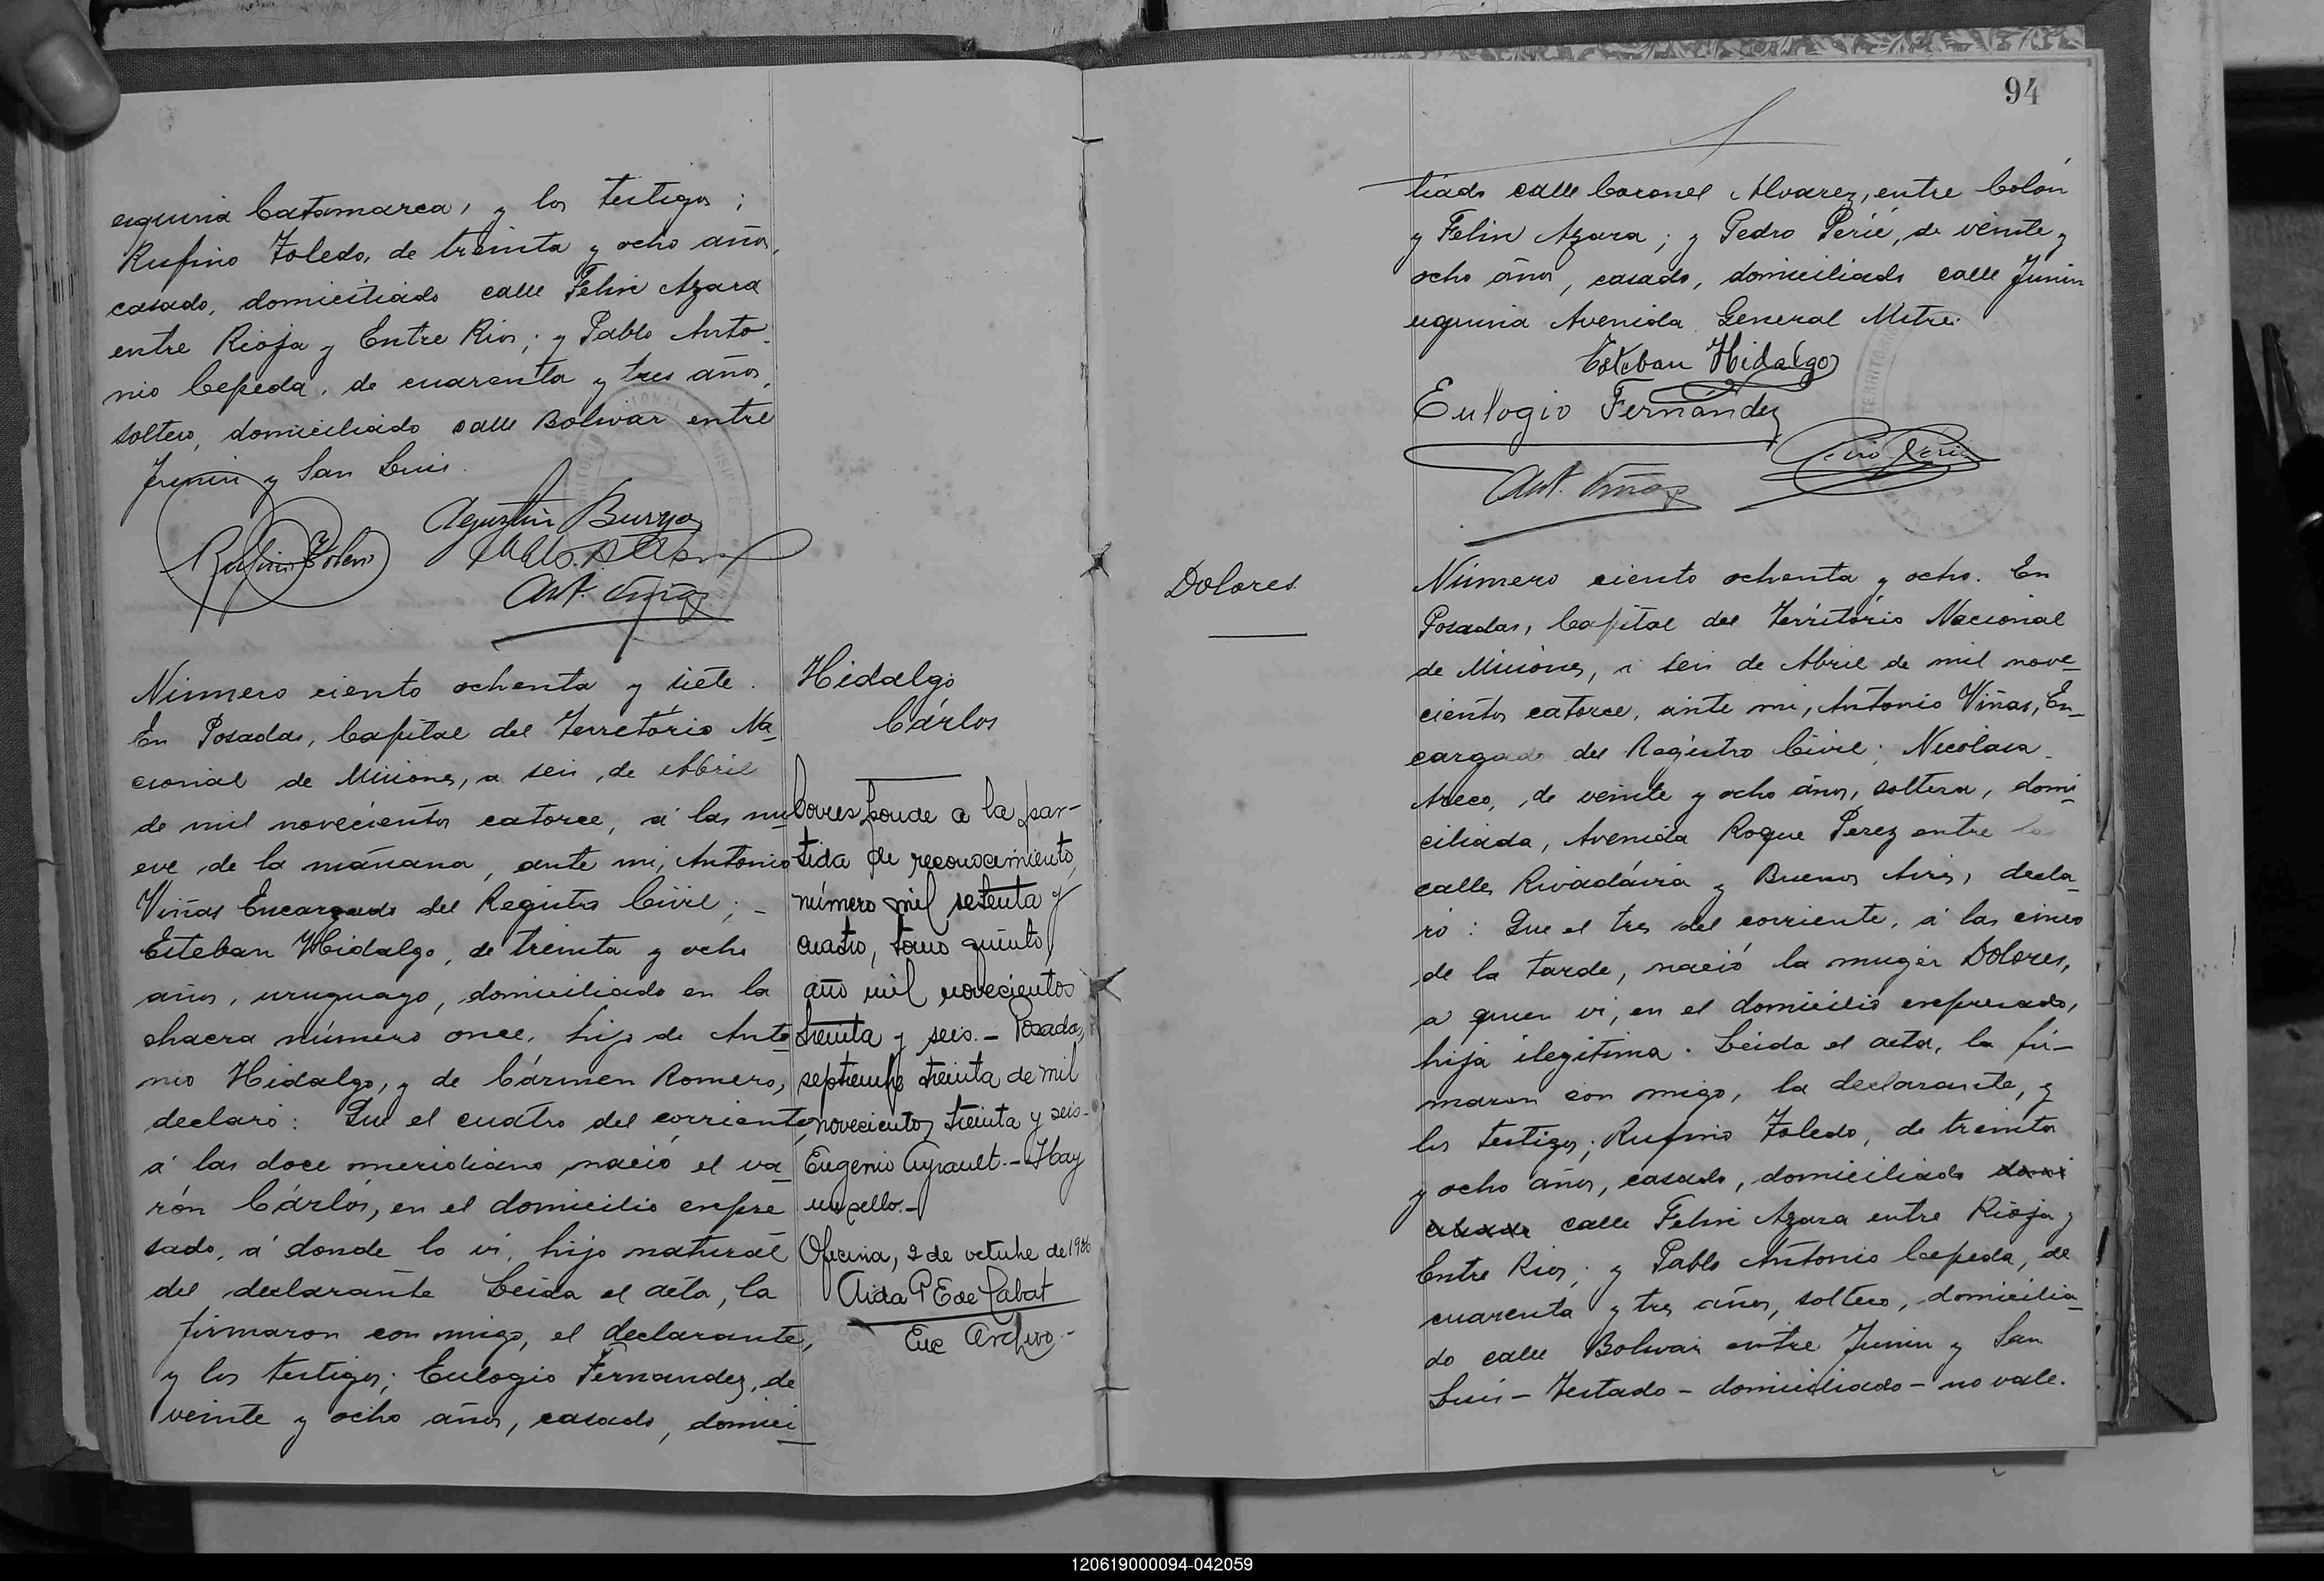 esquina Catamarca, y los testigos;
Rufino Toledo, de treinta y ocho años,
casado, domiciliado calle Felix Azara
entre Rioja y Entre Rios; y Pablo Anto
nio Cepeda, de cuarenta y tres años,
soltero, domiciliado calle Bolivar entre
Junin y San Luis.
Agustin
Rufino Toledo
Ant. Viñas
Número ciento ochenta y siete.
En Posadas, Capital del Território Na
cional de Misiones, a seis, de Abril
de mil novecientos catorce, á las nu
eve de la mañana, ante mi, Antonio
Viñas Encargado del Registro Civil; -
Esteban Hidalgo, de treinta y ocho
años, uruguayo, domiciliado en la
chacra número once, hijo de Anto
nio Hidalgo, y de Cármen Romero,
declaró: Que el cuatro del corriente,
á las doce meridiano, nació el va
rón Cárlos, en el domicilio expre
sado, á donde lo vi, hijo natural
del declarante Leida el acta, la
firmaron con migo, el declarante,
y los testigos; Eulogio Fernandez, de
veinte y ocho años, casado, domici
Hidalgo
Cárlos
Corresponde a la par-
tida de reconocimiento,
número mil setenta y
cuatro, tomo quinto,
año mil novecientos
treinta y seis.- Posadas,
septiembre treinta de mil
novecientos treinta y seis-
Eugenio Ayrault.- Hay
un sello.-
Oficina, 2 de octubre de 1936
Aida P E de Labat
Enc Archivo.-
94
liado calle Coronel Alvarez, entre Colón
y Felix Azara; y Pedro Perié, de veinte y
ocho años, casado, domiciliado calle Junin
esquina Avenida General Mitre.
Esteban Hidalgo
Eulogio Fernandez
Ant. Viñas
Dolores.
Número ciento ochenta y ocho. En
Posadas, Capital del Território Nacional
de Misiones, a seis de Abril de mil nove-
cientos catorce, ante mi, Antonio Viñas, En-
cargado del Registro Civil; Nicolasa
Areco, de veinte y ocho años, soltera, domi-
ciliada, Avenida Roque Perez entre la
calles Rivadávia y Buenos Aires, decla-
ró: Que el tres del corriente, á las cinco
de la tarde, nació la muger Dolores,
a quien vi, en el domicilio expresado,
hija ilegitima. Leida el acta, la fir-
maron con migo, la declarante, y
los testigos; Rufino Toledo, de treinta
y ocho años, casado, domiciliado domi
ciliado calle Felix Azara entre Rioja y
Entre Rios; y Pablo Antonio Cepeda, de
cuarenta y tres años, soltero, domicilia-
do calle Bolivar entre Junin y San
Luis - Testado - domiciliado - no vale.
120619000094-042059